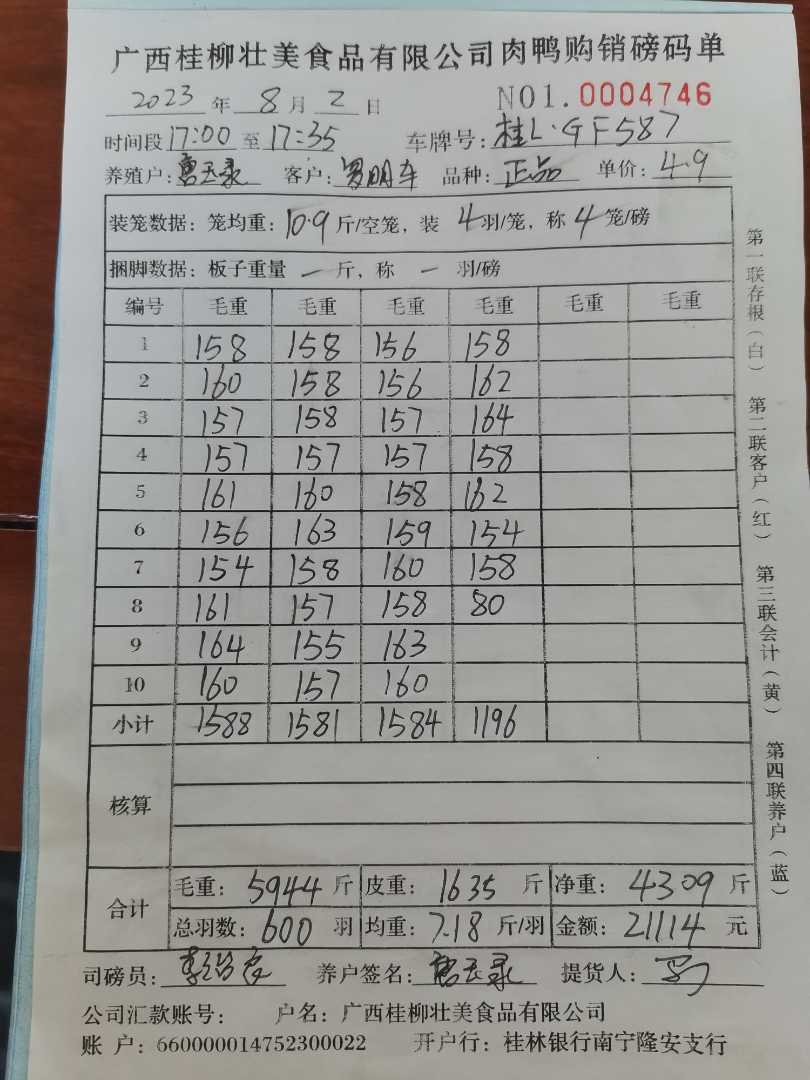 广西桂柳壮美食品有限公司肉鸭购销磅码单
2023年 8月 2日 NO1.0004746
时间段17:00至17:35 车牌号:桂L·GF587
养殖户: 客户: 品种:正品 单价:4.9
装笼数据:笼均重:10.9斤/空笼,装 4羽/笼,称4笼/磅
捆脚数据:板子重量 一 斤,称 一 羽/磅
编号 毛重 毛重 毛重 毛重 毛重 毛重
1 158 158 156 158
2 160 158 156 162
3 157 158 157 164
4 157 157 157 158
5 161 160 158 162
6 156 163 159 154
7 154 158 160 158
8 161 157 158 80
9 164 155 163
10 160 157 160
小计 1588 1581 1584 1196
核算
合计
毛重:5944斤 皮重:1635斤 净重:4309斤
总羽数:600羽 均重:7.18斤/羽 金额:21114元
司磅员: 养户签名: 提货人:
公司汇款账号: 户名:广西桂柳壮美食品有限公司
账 户:660000014752300022 开户行:桂林银行南宁隆安支行
第一联存根(白) 第二联客户(红) 第三联会计(黄) 第四联养户(蓝)